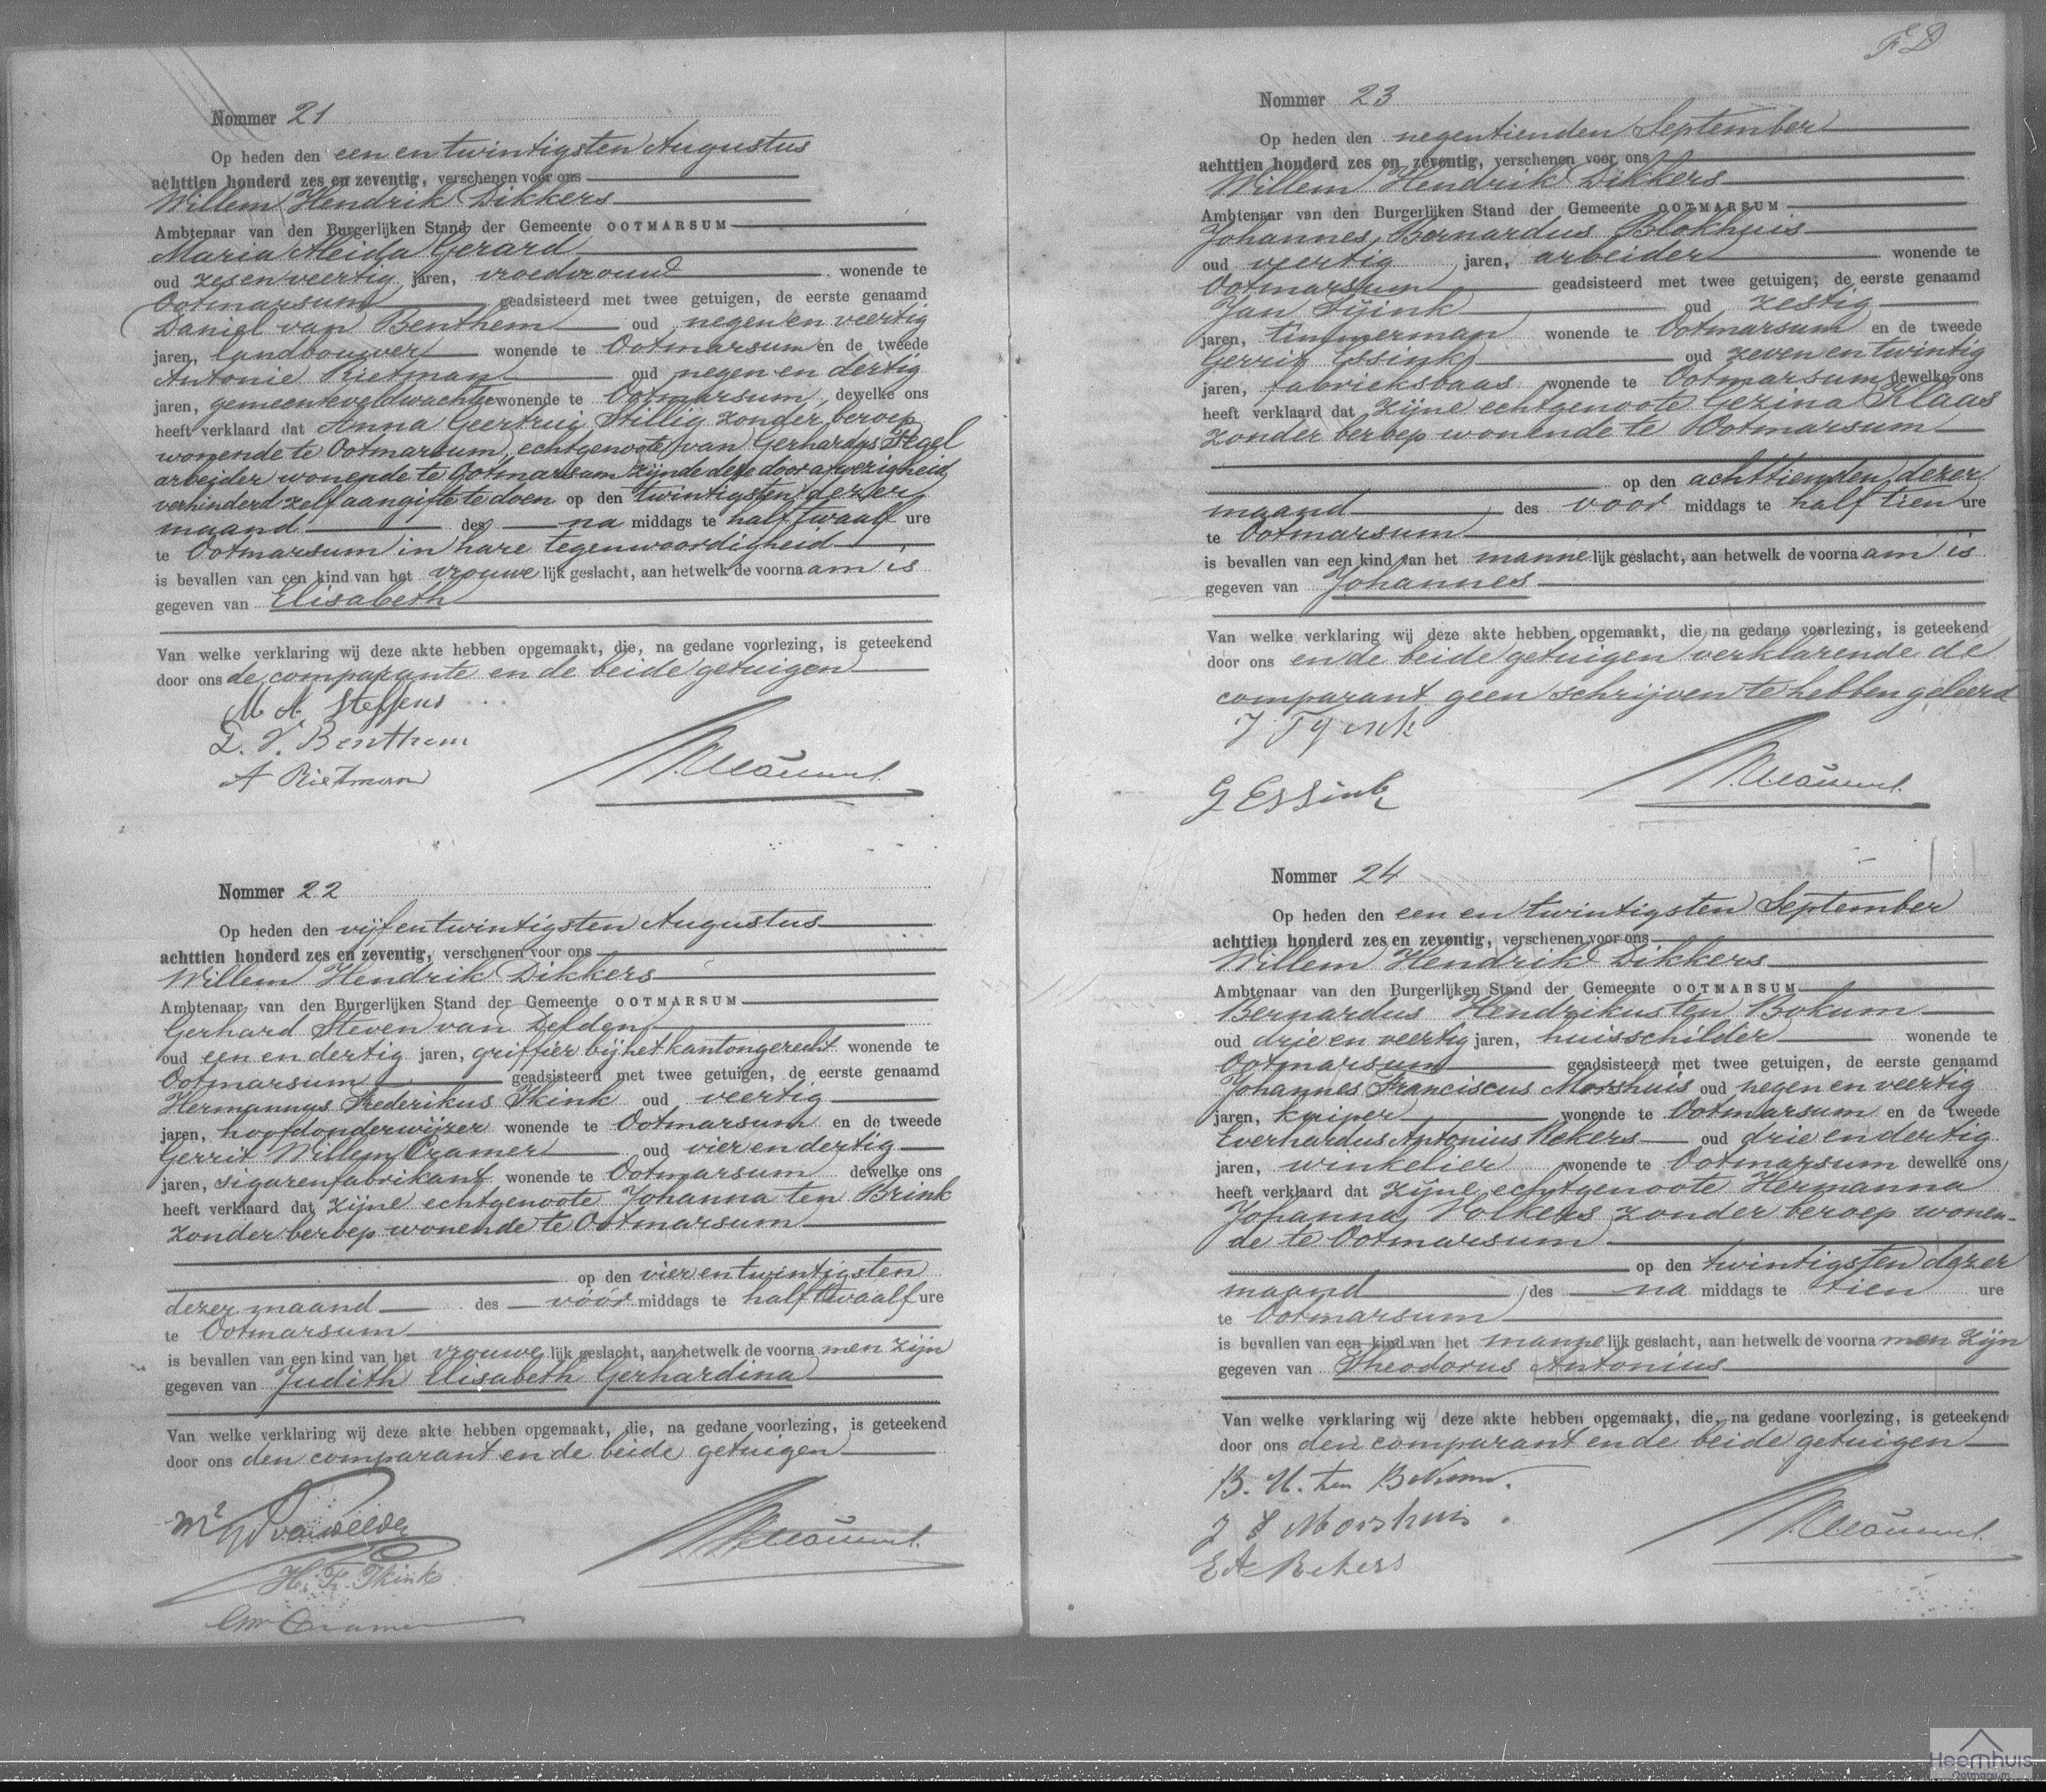 Nommer 21
Op heden den een en twintigsten Augustus
achttien honderd zes en zeventig, verschenen voor ons
Willem Hendrik Dikkers
Ambtenaar van den Burgerlijken Stand der Gemeente OOTMARSUM
Maria Aleida Gerard
oud zes en veertig jaren, vroedvrouw wonende te
Ootmarsum geadsisteerd met twee getuigen, de eerste genaamd
Daniel van Benthem oud negen en veertig
jaren, landbouwer wonende te Ootmarsum en de tweede
Antonie Rietman oud negen en dertig
jaren, gemeenteveldwachter wonende te Ootmarsum, dewelke ons
heeft verklaard dat Anna Geertrui Stillig zonder beroep
wonende te Ootmarsum, echtgenoote van Gerhardus Pegel
arbeider wonende te Ootmarsum zijnde deze door afwezigheid
verhinderd zelf aangifte te doen op den twintigsten dezer
maand des na middags te half twaalf ure
te Ootmarsum in hare tegenwoordigheid
is bevallen van een kind van het vrouwelijk geslacht, aan hetwelk de voornaam is
gegeven van Elisabeth
Van welke verklaring wij deze akte hebben opgemaakt, die, na gedane voorlezing, is geteekend
door ons de comparante en de beide getuigen
M A Steffens
D. V. Benthem
A Rietman
Nommer 22
Op heden den vijf en twintigsten Augustus
achttien honderd zes en zeventig, verschenen voor ons
Willem Hendrik Dikkers
Ambtenaar van den Burgerlijken Stand der Gemeente OOTMARSUM
Gerhard Steven van Delden
oud een en dertig jaren, griffier bij het kantongerecht wonende te
Ootmarsum geadsisteerd met twee getuigen, de eerste genaamd
Hermannus Frederikus Ikink oud veertig
jaren, hoofdonderwijzer wonende te Ootmarsum en de tweede
Gerrit Willem Cramer oud vier en dertig
jaren, sigarenfabrikant wonende te Ootmarsum dewelke ons
heeft verklaard dat zijne echtgenoote Johanna ten Brink
zonder beroep wonende te Ootmarsum
op den vier en twintigsten
dezer maand des vóór middags te half twaalf ure
te Ootmarsum
is bevallen van een kind van het vrouwelijk geslacht, aan hetwelk de voornamen zijn
gegeven van Judith Elisabeth Gerhardina
Van welke verklaring wij deze akte hebben opgemaakt, die, na gedane voorlezing, is geteekend
door ons den comparant en de beide getuigen
H. F. Ikink
GW Cramer
F D
Nommer 23
Op heden den negentienden September
achttien honderd zes en zeventig, verschenen voor ons
Willem Hendrik Dikkers
Ambtenaar van den Burgerlijken Stand der Gemeente OOTMARSUM
Johannes Bernardus Blokhuis
oud veertig jaren, arbeider wonende te
Ootmarsum geadsisteerd met twee getuigen, de eerste genaamd
Jan oud zestig
jaren, timmerman wonende te Ootmarsum en de tweede
Gerrit Essink oud zeven en twintig
jaren, fabrieksbaas wonende te Ootmarsum, dewelke ons
heeft verklaard dat zijne echtgenoote Gezina Klaas
zonder beroep wonende te Ootmarsum
op den achttienden dezer
maand des voor middags te half tien ure
te Ootmarsum
is bevallen van een kind van het mannelijk geslacht, aan hetwelk de voornaam is
gegeven van Johannes
Van welke verklaring wij deze akte hebben opgemaakt, die, na gedane voorlezing, is geteekend
door ons en de beide getuigen verklarende de
comparant geen schrijven te hebben geleerd
G Essink
Nommer 24
Op heden den een en twintigsten September
achttien honderd zes en zeventig, verschenen voor ons
Willem Hendrik Dikkers
Ambtenaar van den Burgerlijken Stand der Gemeente OOTMARSUM
Bernardus Hendrikus ten Bokum
oud drie en veertig jaren, huisschilder wonende te
Ootmarsum geadsisteerd met twee getuigen, de eerste genaamd
Johannes Franciscus Morshuis oud negen en veertig
jaren, kuiper wonende te Ootmarsum en de tweede
Everhardus Antonius Rekers oud drie en dertig
jaren, winkelier wonende te Ootmarsum dewelke ons
heeft verklaard dat zijne echtgenoote Hermanna
Johanna Volkers zonder beroep wonen-
de te Ootmarsum
op den twintigsten dezer
maand des na middags te tien ure
te Ootmarsum
is bevallen van een kind van het mannelijk geslacht, aan hetwelk de voornamen zijn
gegeven van Theodorus Antonius
Van welke verklaring wij deze akte hebben opgemaakt, die, na gedane voorlezing, is geteekend
door ons den comparant en de beide getuigen
B. H. ten Bokum.
J F Morshuis.
E A Rekers
Heemhuis
Ootmarsum